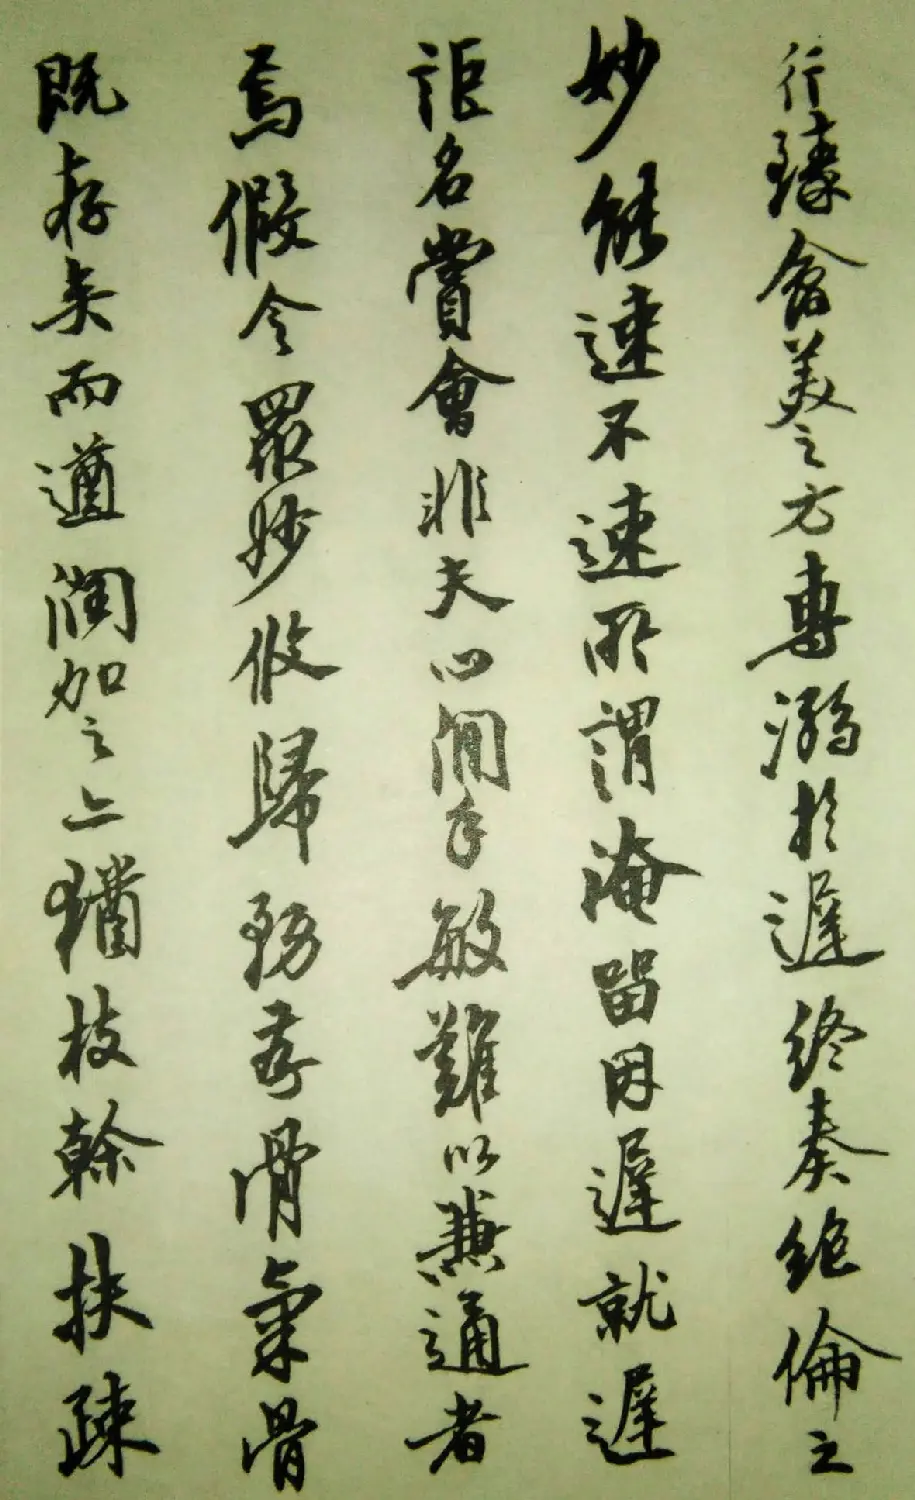 行臻會美之方專溺於遲終奏絕倫之
妙能速不速所謂淹留因遲就遲
詎名賞會非夫心閒手敏難以兼通者
焉假令眾妙攸歸務存骨氣骨
既存矣而遒潤加之亦猶枝榦扶疎